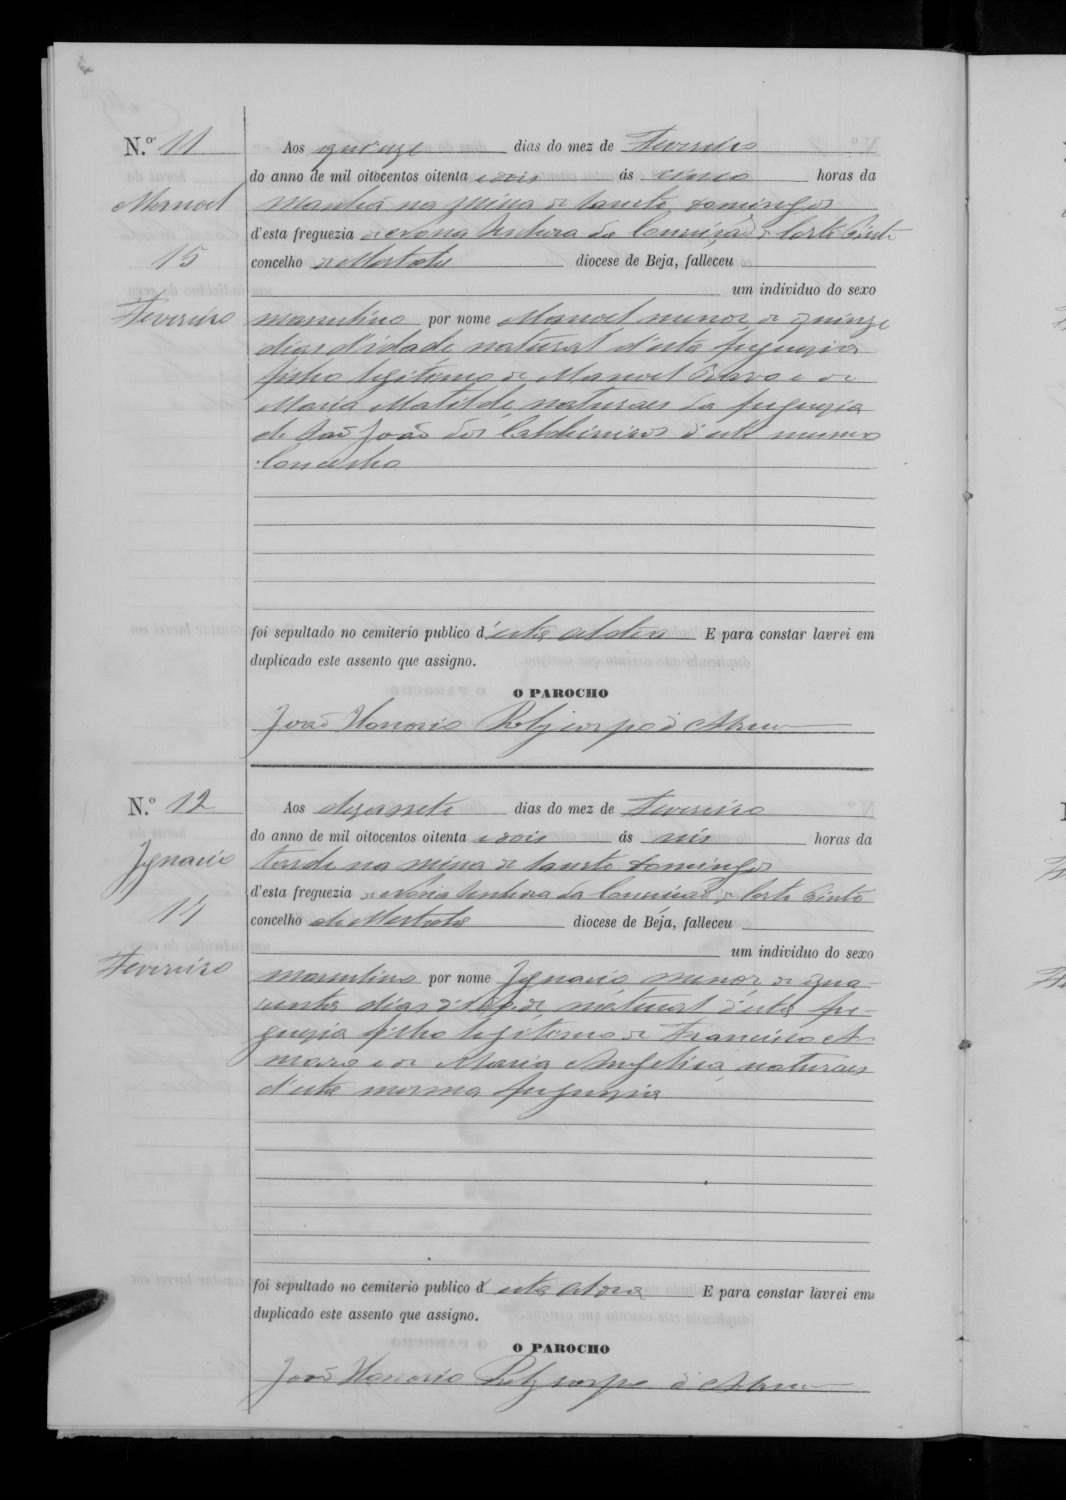 N.º 11
Aos quinze dias do mez de Fevereiro
do anno de mil oitocentos oitenta e dois ás cinco horas da
Manoel
manhã na mina de Santo Domingos
d'esta freguezia de Nossa Senhora da Conceição de Corte Pinto
15
concelho de Mertola diocese de Beja, falleceu
um individuo do sexo
Fevereiro
masculino por nome Manoel menor de quinze
dias d'idade natural d'esta freguezia
filho legitimo de Manoel Bravo e de
Maria Matilde naturaes da freguezia
de São João dos Caldeireiros d'este mesmo
Concelho
foi sepultado no cemiterio publico d'esta aldeia E para constar lavrei em
duplicado este assento que assigno.
O PAROCHO
João Honorio Polycarpo d'Abreu
N.º 12
Aos dezassete dias do mez de Fevereiro
do anno de mil oitocentos oitenta e dois ás seis horas da
Ignacio
tarde na mina de Santo Domingos
d'esta freguezia de Nossa Senhora da Conceição de Corte Pinto
17
concelho de Mertola diocese de Beja, falleceu
um individuo do sexo
Fevereiro
masculino por nome Ignacio menor de qua-
renta dias d'idade natural d'esta fre-
guezia filho legitimo de Francisco A-
maro e de Maria Angelica naturaes
d'esta mesma freguezia
foi sepultado no cemiterio publico d'esta aldeia E para constar lavrei em
duplicado este assento que assigno.
O PAROCHO
João Honorio Polycarpo d'Abreu